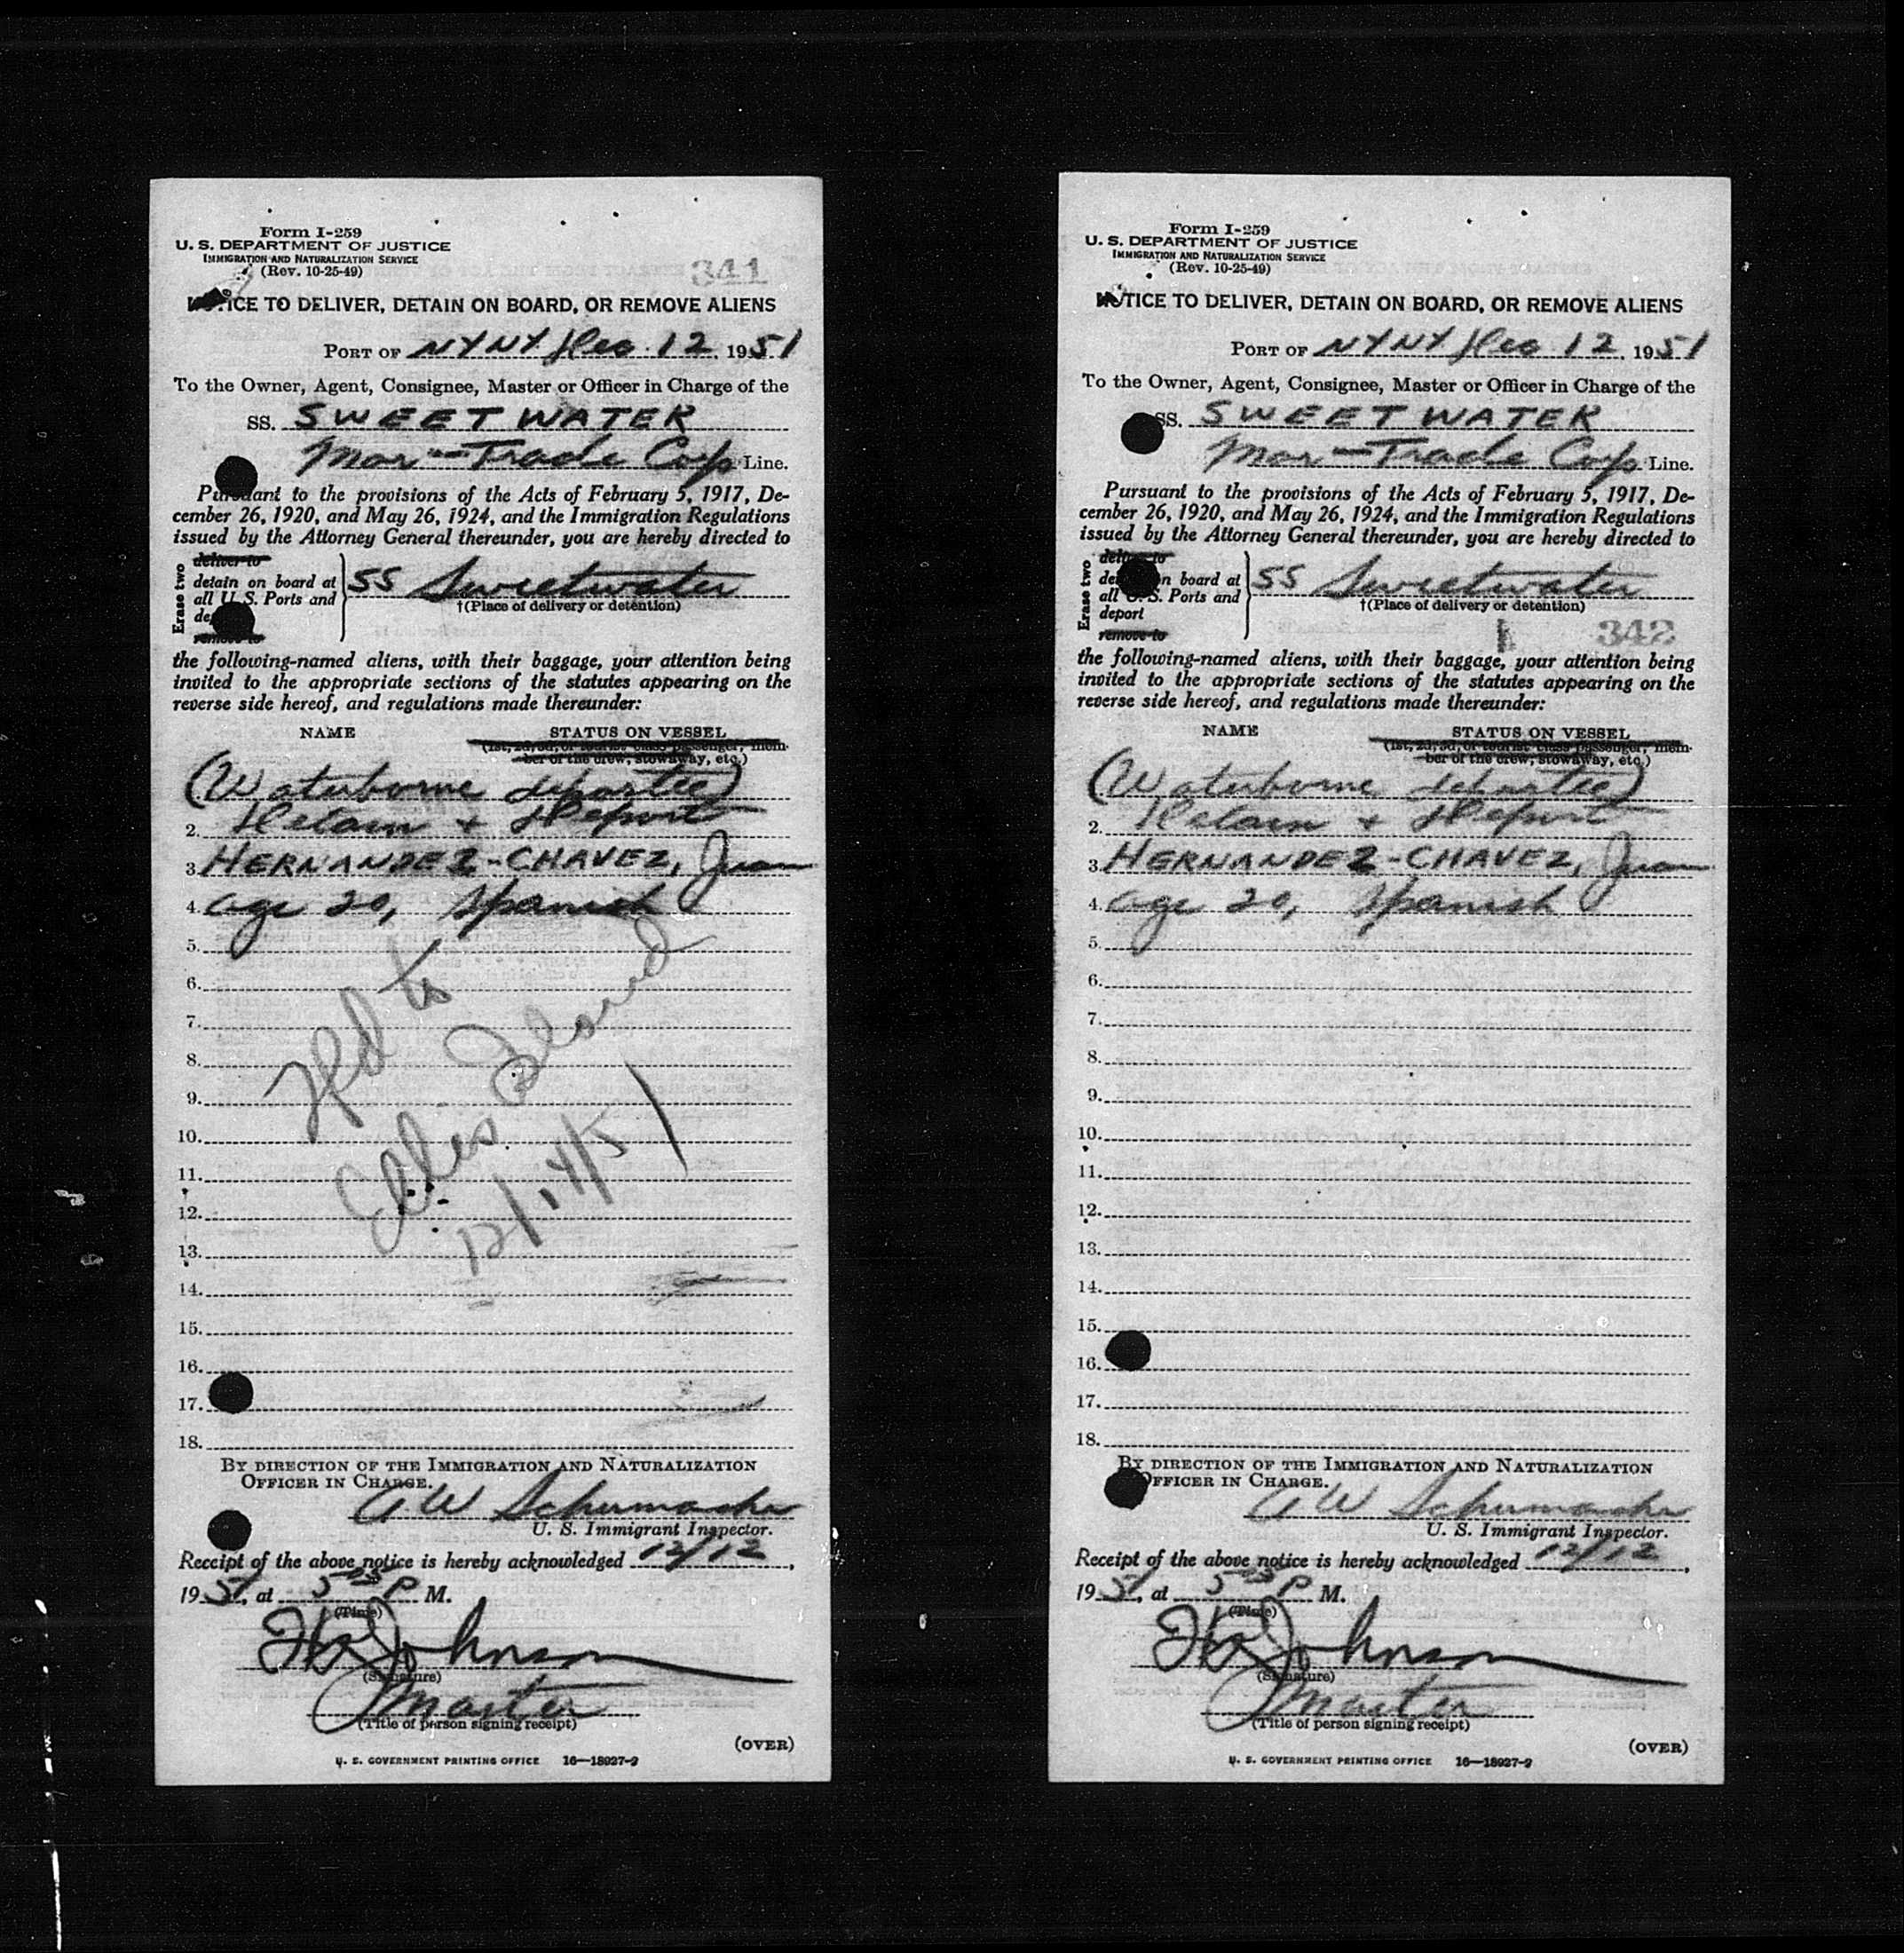 Form I-259
U. S. DEPARTMENT OF JUSTICE
IMMIGRATION AND NATURALIZATION SERVICE
(Rev. 10-25-49)
341
NOTICE TO DELIVER, DETAIN ON BOARD, OR REMOVE ALIENS
PORT OF NYNY Dec 12, 1951
To the Owner, Agent, Consignee, Master or Officer in Charge of the
SS. SWEETWATER
Mar-Trade Corp Line.
Pursuant to the provisions of the Acts of February 5, 1917, De-
cember 26, 1920, and May 26, 1924, and the Immigration Regulations
issued by the Attorney General thereunder, you are hereby directed to
Erase two
deliver to
detain on board at
all U.S. Ports and
de
remove to
SS Sweetwater
†(Place of delivery or detention)
the following-named aliens, with their baggage, your attention being
invited to the appropriate sections of the statutes appearing on the
reverse side hereof, and regulations made thereunder:
NAME STATUS ON VESSEL
(1st, 2d, 3d, or tourist class passenger, mem-
ber of the crew, stowaway, etc.)
(Waterborne departee)
2. Detain + Deport
3. HERNANDEZ-CHAVEZ, Juan
4. age 20, Spanish
5.
6.
7.
8.
9.
10.
11.
12.
13.
14.
15.
16.
17.
18.
to
Ellis Island
12/14/51
BY DIRECTION OF THE IMMIGRATION AND NATURALIZATION
OFFICER IN CHARGE.
A W Schumacher
U. S. Immigrant Inspector.
Receipt of the above notice is hereby acknowledged 12/12,
1951, at 5 05 P M.
(Time)
Johnson
(Signature)
Master
(Title of person signing receipt)
(OVER)
U. S. GOVERNMENT PRINTING OFFICE 16—18927-2
Form I-259
U. S. DEPARTMENT OF JUSTICE
IMMIGRATION AND NATURALIZATION SERVICE
(Rev. 10-25-49)
NOTICE TO DELIVER, DETAIN ON BOARD, OR REMOVE ALIENS
PORT OF NYNY Dec 12, 1951
To the Owner, Agent, Consignee, Master or Officer in Charge of the
SS. SWEETWATER
Mar-Trade Corp Line.
Pursuant to the provisions of the Acts of February 5, 1917, De-
cember 26, 1920, and May 26, 1924, and the Immigration Regulations
issued by the Attorney General thereunder, you are hereby directed to
Erase two
deliver to
detain on board at
all U.S. Ports and
deport
remove to
SS Sweetwater
†(Place of delivery or detention)
342
the following-named aliens, with their baggage, your attention being
invited to the appropriate sections of the statutes appearing on the
reverse side hereof, and regulations made thereunder:
NAME STATUS ON VESSEL
(1st, 2d, 3d, or tourist class passenger, mem-
ber of the crew, stowaway, etc.)
(Waterborne departee)
2. Detain + Deport
3. HERNANDEZ-CHAVEZ, Juan
4. age 20, Spanish
5.
6.
7.
8.
9.
10.
11.
12.
13.
14.
15.
16.
17.
18.
BY DIRECTION OF THE IMMIGRATION AND NATURALIZATION
OFFICER IN CHARGE.
A W Schumacher
U. S. Immigrant Inspector.
Receipt of the above notice is hereby acknowledged 12/12,
1951, at 5 05 P M.
(Time)
Johnson
(Signature)
Master
(Title of person signing receipt)
(OVER)
U. S. GOVERNMENT PRINTING OFFICE 16—18927-2